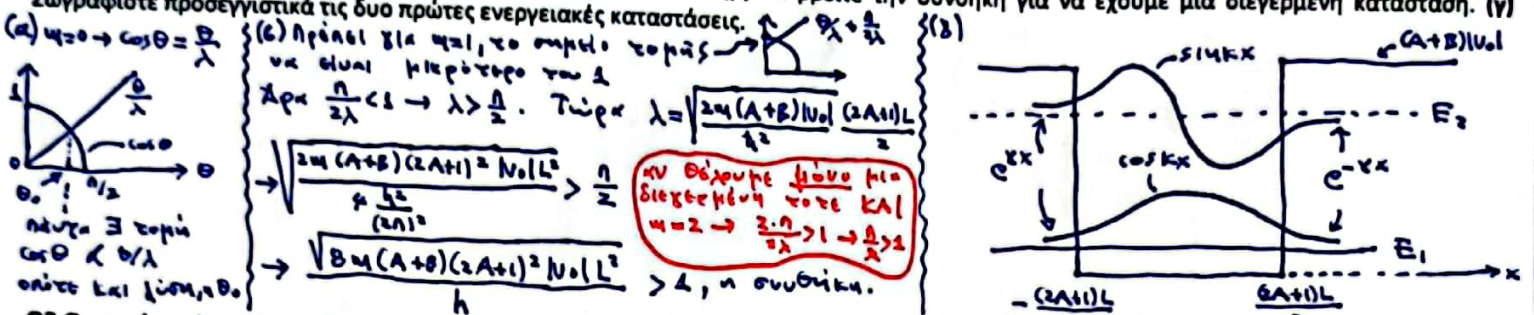 ζωγραφίστε προσεγγιστικά τις δυο πρώτες ενεργειακές καταστάσεις.
την συνθήκη για να έχουμε μια διεγερμένη κατάσταση. (γ)
(α) m=0 → cosθ = θ/λ
1
θ/λ
cosθ
0
θ
θ₀
π/2
πάντα ∃ τομή
cosθ & θ/λ
οπότε και λύση, η θ₀
(β) Πρέπει για m=1, το σημείο τομής →
θ/λ + π/2λ
να είναι μικρότερο του 1
Άρα π/2λ < 1 → λ > π/2. Τώρα λ = √(2m(A+B)|V₀|/ħ²) (2A+1)L/2
→ √(2m(A+B)(2A+1)²|V₀|L²/(4 h²/(2π)²)) > π/2
→ √(8m(A+B)(2A+1)²|V₀|L²)/h > 1, η συνθήκη.
αν θέλουμε μόνο μια
διεγερμένη τότε ΚΑΙ
m=2 → 2·π/2λ > 1 → π/λ > 1
(γ)
sinkx
(A+B)|V₀|
E₂
coskx
e^γx
e^-γx
E₁
x
-(2A+1)L
(2A+1)L